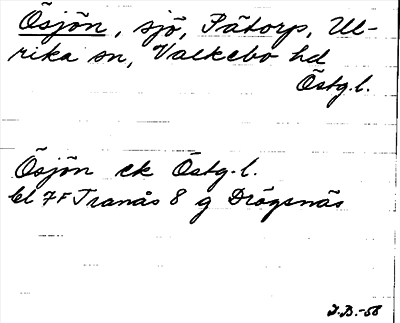 Ösjön, sjö, Påtorp, Ul-
rika sn, Valkebo hd
Östg.l.
Ösjön ek Östg.l.
bl 7F Tranås 8 g Drögsnäs
J.B.-58